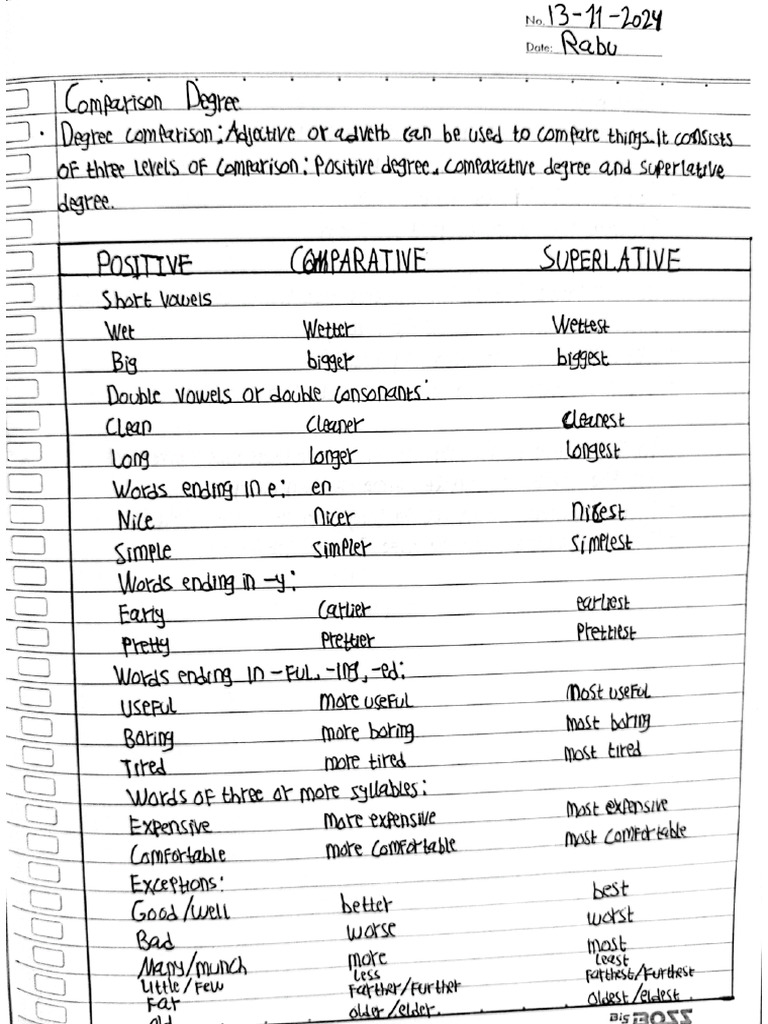 No. 13-11-2024
Date: Rabu
Comparison Degree
• Degree comparison: Adjective or adverb can be used to compare things. It consists
of three levels of comparison: Positive degree. comparative degree and superlative
degree.
POSITIVE COMPARATIVE SUPERLATIVE
Short vowels
Wet Wetter Wettest
Big bigger biggest
Double vowels or double consonants:
Clean Cleaner Cleanest
Long longer longest
Words ending in e: en
Nice nicer nicest
Simple simpler simplest
Words ending in -y:
Early earlier earliest
Pretty Prettier Prettiest
Words ending in -ful, -ing, -ed:
Useful more useful most useful
Boring more boring most boring
Tired more tired most tired
Words of three or more syllables:
Expensive more expensive most expensive
Comfortable more comfortable most comfortable
Exceptions:
Good/well better best
Bad worse worst
Many/munch more most
little/few less least
Far Farther/further Farthest/furthest
old older/elder. oldest/eldest.
Big BOSS